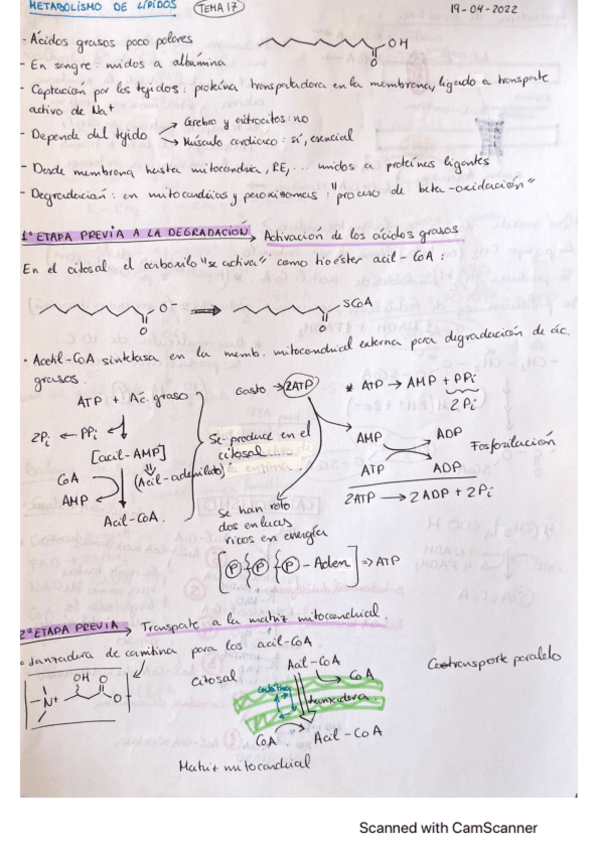 METABOLISMO DE LÍPIDOS (TEMA 17) 19-04-2022
- Ácidos grasos poco polares
OH
O
- En sangre: unidos a albúmina
- Captación por los tejidos: proteína transportadora en la membrana, ligado a transporte
activo de Na+
- Depende del tejido
Cerebro y eritrocitos: no
Músculo cardiaco: sí, esencial
- Desde membrana hasta mitocondria, RE,... unidos a proteínas ligantes
- Degradación: en mitocondrias y peroxisomas: "proceso de beta-oxidación"
1ª ETAPA PREVIA A LA DEGRADACIÓN → Activación de los ácidos grasos
En el citosol el carboxilo "se activa" como tioéster acil-CoA:
O-
O
⇒
SCoA
O
· Acetil-CoA sintetasa en la memb. mitocondrial externa para degradación de ác.
grasos.
ATP + Ác. graso
2Pi ← PPi
[acil-AMP]
(Acil-adenilato)
CoA
AMP
Acil-CoA
Se produce en el
citosol
Gasto → 2ATP
* ATP → AMP + PPi
2Pi
AMP
ADP
ATP
ADP
Fosforilación
2ATP → 2ADP + 2Pi
Se han roto
dos enlaces
ricos en energía
[P}{P}{P - Aden] ⇒ ATP
2ª ETAPA PREVIA → Transporte a la matriz mitocondrial.
· lanzadera de carnitina para los acil-CoA
OH
O
-N+
O
Citosol
Acil-CoA
CoA
carnitina
lanzadera
CoA
Acil-CoA
Matriz mitocondrial
Cotransporte paralelo
Scanned with CamScanner